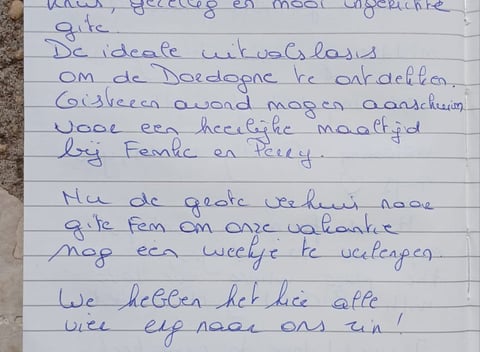 Knus, gezellig en mooi ingerichte
gite.
De ideale uitvalsbasis
om de Dordogne te ontdekken.
Gisteren avond mogen aanschuiven
voor een heerlijke maaltijd
bij Femke en Perry.
Nu de grote verhuis naar
gite Fem om onze vakantie
nog een weekje te verlengen.
We hebben het hier alle
vier erg naar ons zin!